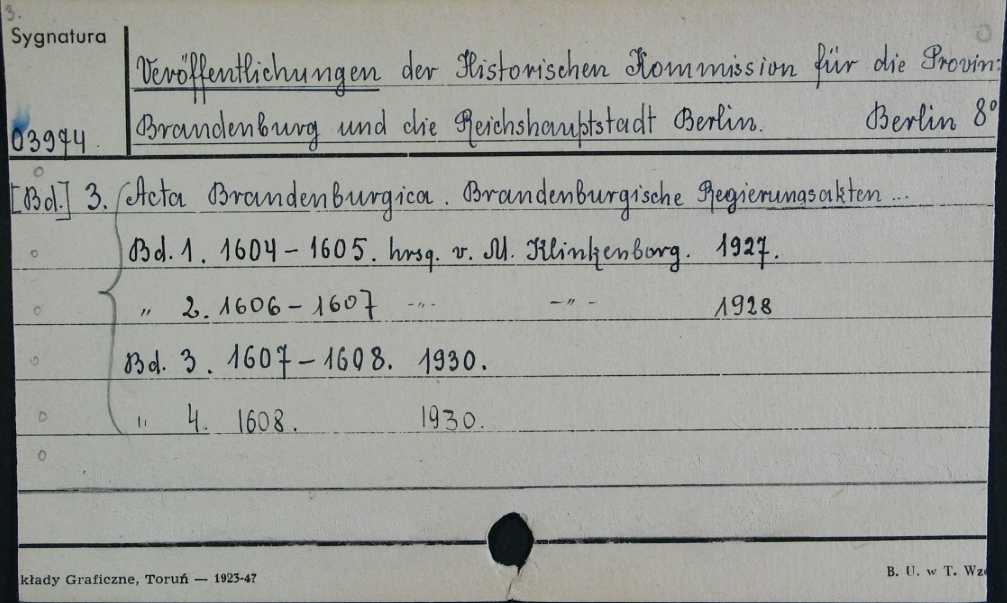 3.
Sygnatura
Veröffentlichungen der Historischen Kommission für die Provin:
03974. Brandenburg und die Reichshauptstadt Berlin. Berlin 8°
[Bd.] 3. Acta Brandenburgica. Brandenburgische Regierungsakten ...
Bd. 1. 1604 – 1605. hrsg. v. M. Klinkenborg. 1927.
„ 2. 1606 – 1607 -„- -„- 1928
Bd. 3. 1607 – 1608. 1930.
„ 4. 1608. 1930.
kłady Graficzne, Toruń — 1923-47
B. U. w T. Wz